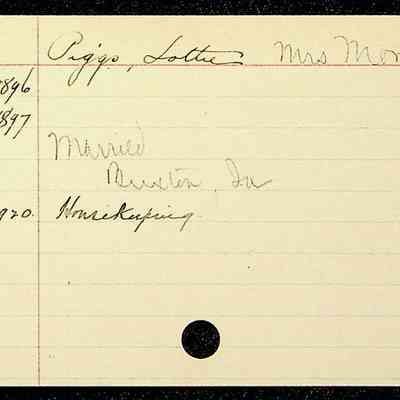 Piggs, Lottie Mrs Mon
896
897
Married
Buxton, Ia
920. Housekeeping